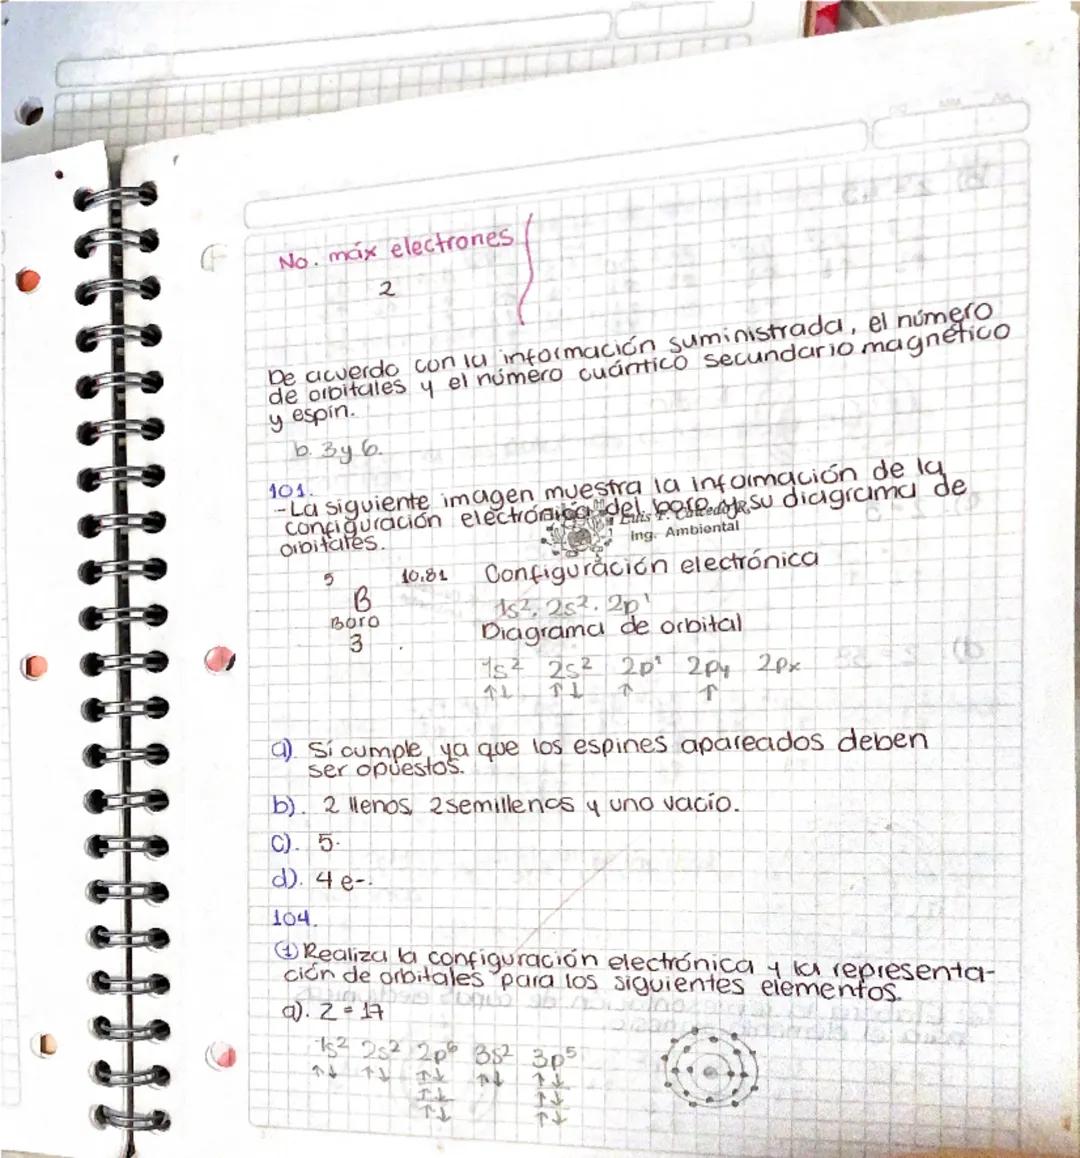 No. máx electrones
2
De acuerdo con la información suministrada, el número
de orbitales y el número cuántico secundario magnético
y espin.
b. 3 y 6.
101.
- La siguiente imagen muestra la información de la
configuración electrónica del boro y su diagrama de
orbitales.
Ing. Ambiental
5 10.81 Configuración electrónica
B 1s², 2s². 2p¹
Boro Diagrama de orbital
3
1s² 2s² 2p¹ 2py 2px
↑↓ ↑↓ ↑ ↑
a). Sí cumple, ya que los espines apareados deben
ser opuestos.
b). 2 llenos, 2 semillenos y uno vacío.
c). 5.
d). 4 e-.
104.
① Realiza la configuración electrónica y la representa-
ción de orbitales para los siguientes elementos.
a). Z = 17
1s² 2s² 2p⁶ 3s² 3p⁵
↑↓ ↑↓ ↑↓ ↑↓ ↑↓
↑↓ ↑↓
↑↓ ↑↓